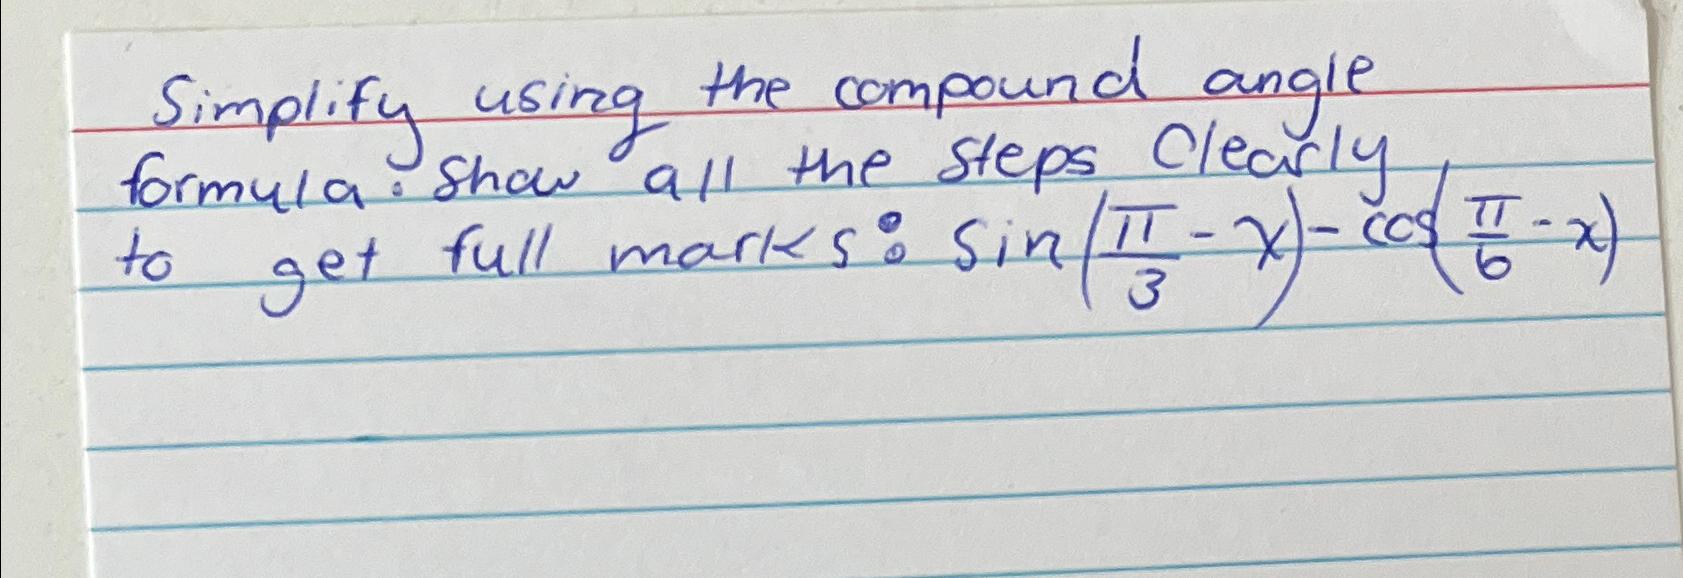 Simplify using the compound angle
formula. Show all the steps Clearly
to get full marks: Sin(π/3 - x) - cos(π/6 - x)